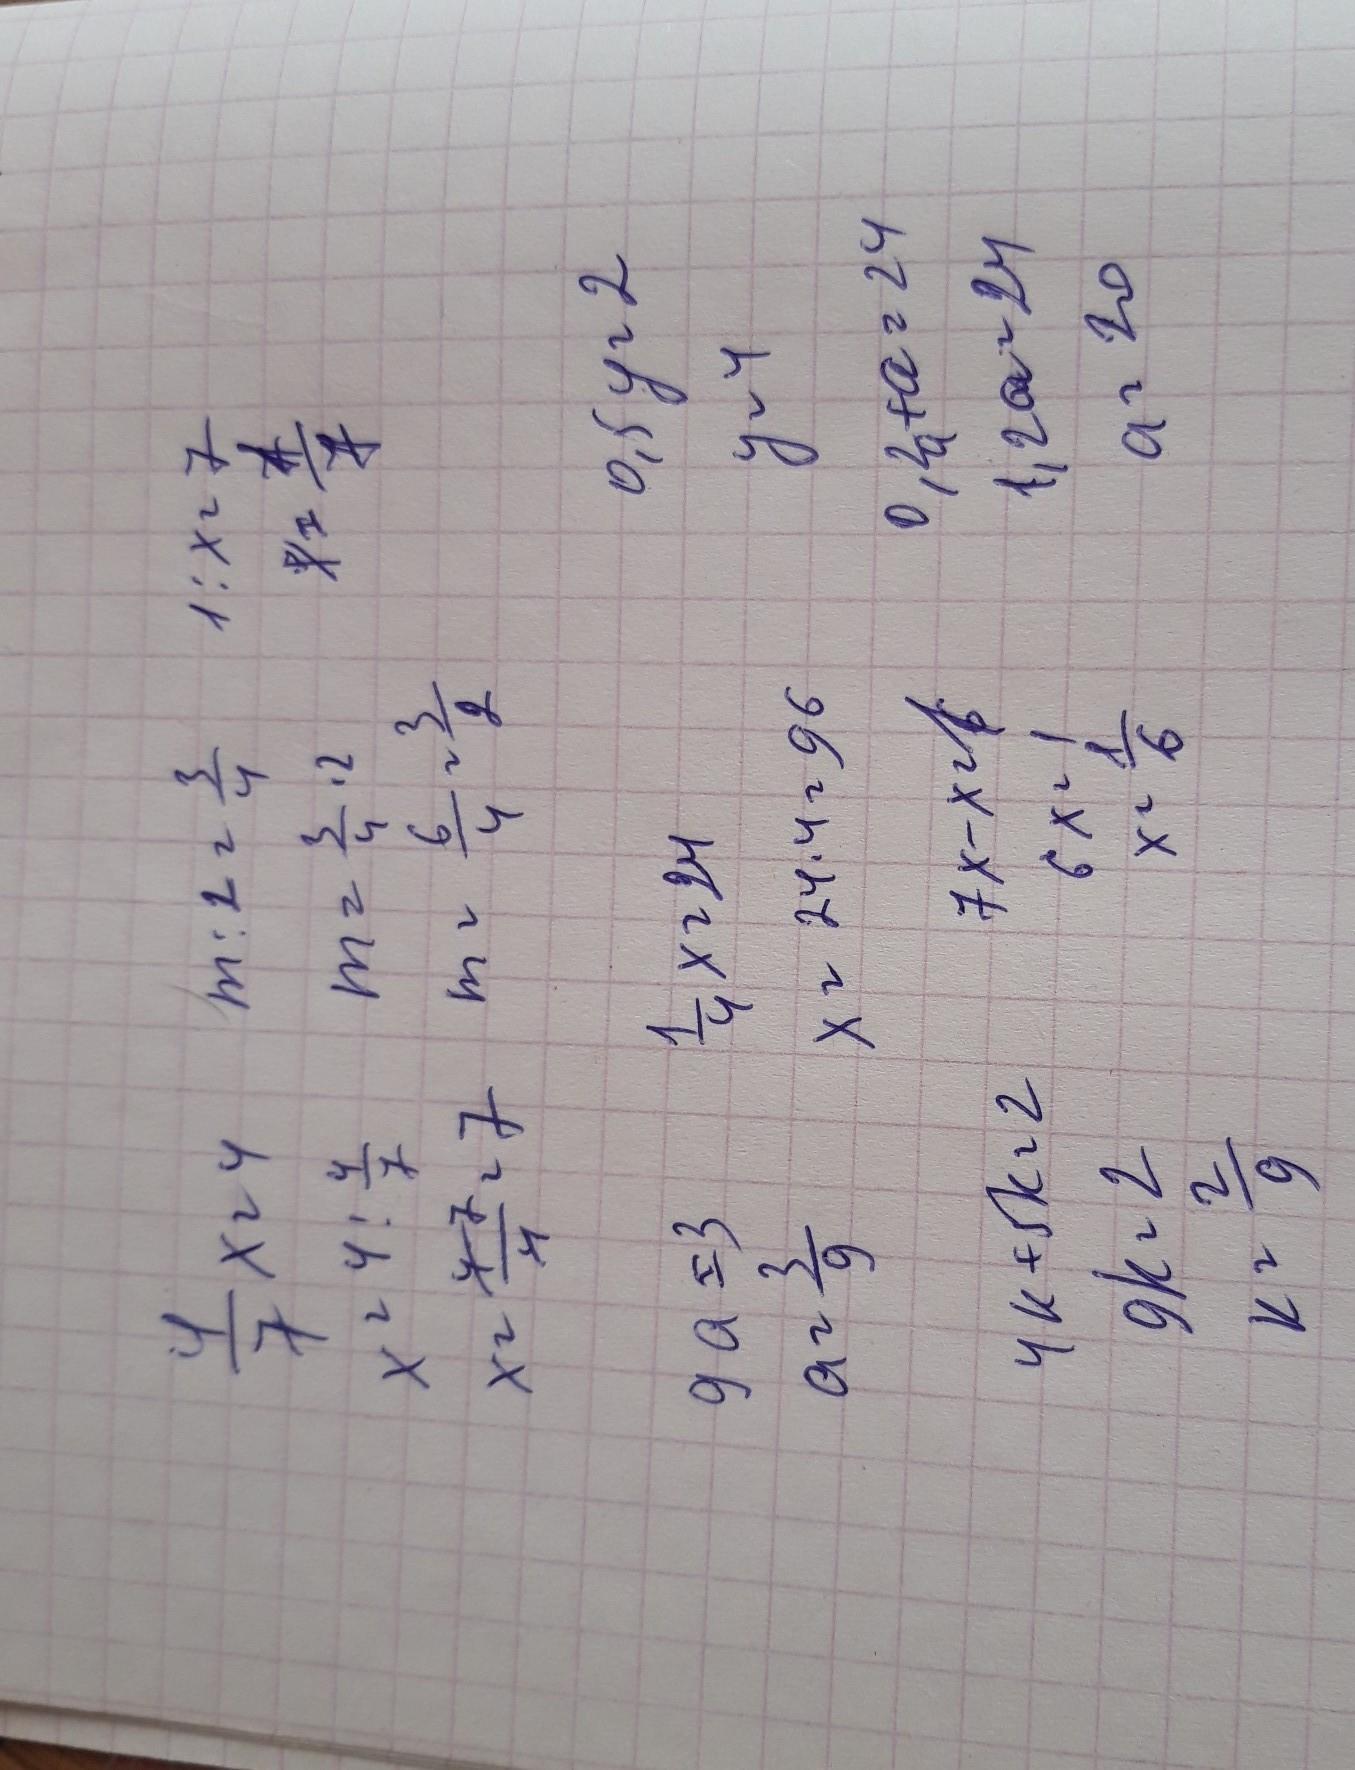 4/7 x = 4
x = 4 : 4/7
x = 4·7/4 = 7
m : 2 = 3/4
m = 3/4 · 2
m = 6/4 = 3/2
1 : x = 7
9a = 3
a = 3/9
1/4 x = 24
x = 24·4 = 96
0,5y = 2
y = 4
4k + 5k = 2
9k = 2
k = 2/9
7x - x =
6x = 1
x = 1/6
+ a = 24
1,2a = 24
a = 20